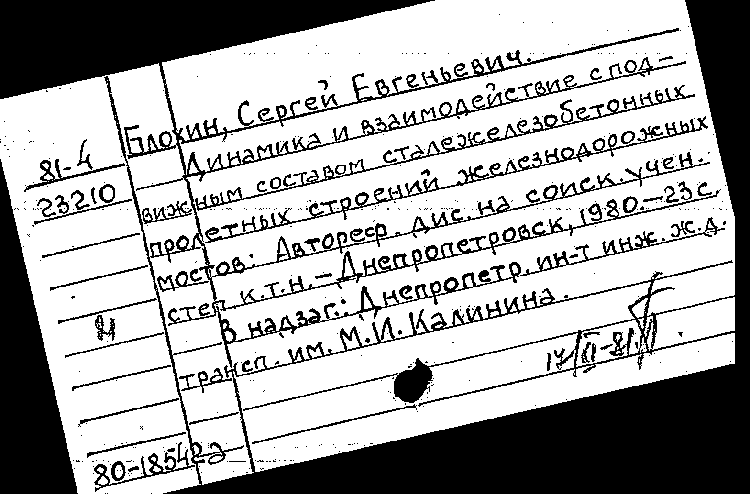 Блохин, Сергей Евгеньевич.
81-4
23210
Динамика и взаимодействие с под-
вижным составом сталежелезобетонных
пролетных строений железнодорожных
мостов: Автореф. дис. на соиск. учен.
степ. к.т.н. – Днепропетровск, 1980. – 23 с.
В надзаг.: Днепропетр. ин-т инж. ж.д.
трансп. им. М.И. Калинина.
80-18542а